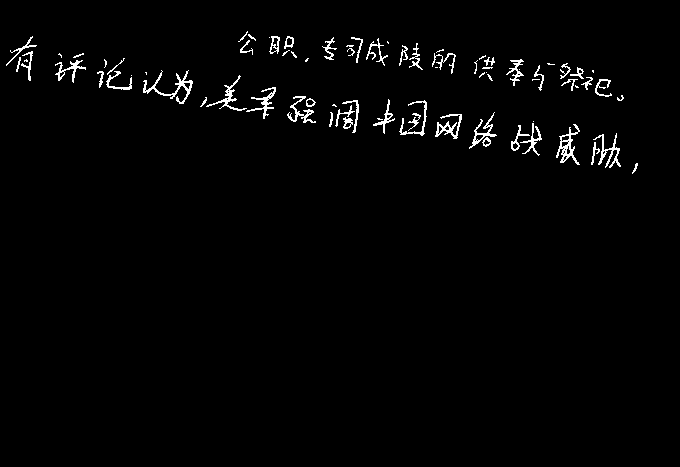 公职，专司成陵的供奉与祭祀。
有评论认为，美军强调中国网络战威胁，